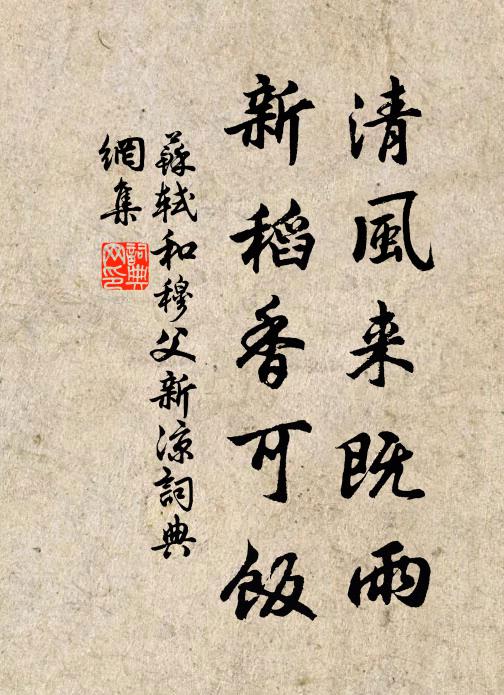 清風来既雨
新稻香可飯
蘇軾和穆父新涼詞典
網集
詞典
网印